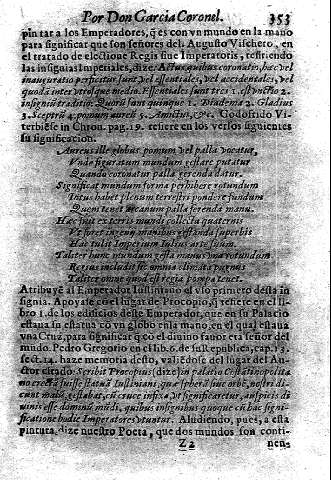 Por Don Garcia Coronel. 353
pintar a los Emperadores, q̃ es con vn mundo en la mano
para significar que son señores del. Augusto Vischero, en
el tratado de electione Regis siue Imperatoris, refiriendo
las insignias Imperiales, dize: Actus quibus coronatio, hæc vel
inauguratio perficitur sunt vel essentiales, vel accidentales, vel
quodã inter vtrosque medio. Essentiales sunt tres 1. est vnctio 2.
insigniũ traditio: Quorũ sunt quinque 1. Diadema 2. Gladius
3. Sceptrũ 4. pomum aureũ 5. Amictus, &c. Godofrido Vi-
terbiẽse in Chron. pag. 19. refiere en los versos siguientes
su significacion.
Aureus ille globus pomum vel palla vocatur,
Vnde figuratum mundum gestare putatur
Quando coronatur palla ferenda datur.
Significat mundum forma perhibere rotundum
Intus habet plenum terrestri pondere fundum
Quem tenet arcanum palla ferenda manu.
Hæc fuit ex terris mundi collecta quaternis
Vt foret in vnum manibus gestanda superbis
Hac tulit Imperium Iulius arte suum.
Taliter hunc mundum gesta manus ima rotundum
Regius includit sic omnia climata pugnus
Taliter omne quod est regia pompa tenet.
Atribuye al Emperador Iustiniano el vso primero desta in
signia. Apoyase cõ el lugar de Procopio, q̃ refiere en el li-
bro 1. de los edificios deste Emperador, que en su Palacio
estaua su estatua cõ vn globo en la mano, en el qual estaua
vna Cruz, para significar q̃ cõ el diuino fauor era señor del
mundo. Pedro Gregorio en el lib. 6. de su Republica, cap. 13.
sect. 14. haze memoria desto, valiẽdose del lugar del Au-
ctor citado. Scribit Procopius (dize) in palatio Cõstãtinopolita
no erectã fuisse statuã Iustiniani, quæ spherã siue orbẽ, nostri di-
cunt malũ, gestabat, cũ cruce infixa, vt significaretur, auspicijs di
uinis esse dominũ mũdi, quibus insignibus quoque cũ hac signi-
ficatione hodie Imperatores vtuntur. Aludiendo, pues, a esta
pintura, dize nuestro Poeta, que dos mundos son conti-
Z 2 nen-